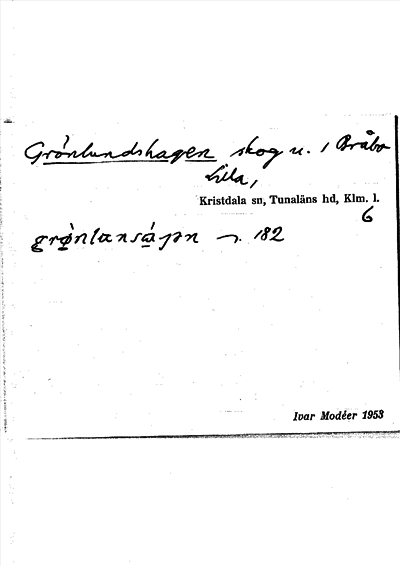 Grönlundshagen skog u. 1 Bråbo
Lilla,
Kristdala sn, Tunaläns hd, Klm. l.
6
182
Ivar Modéer 1953